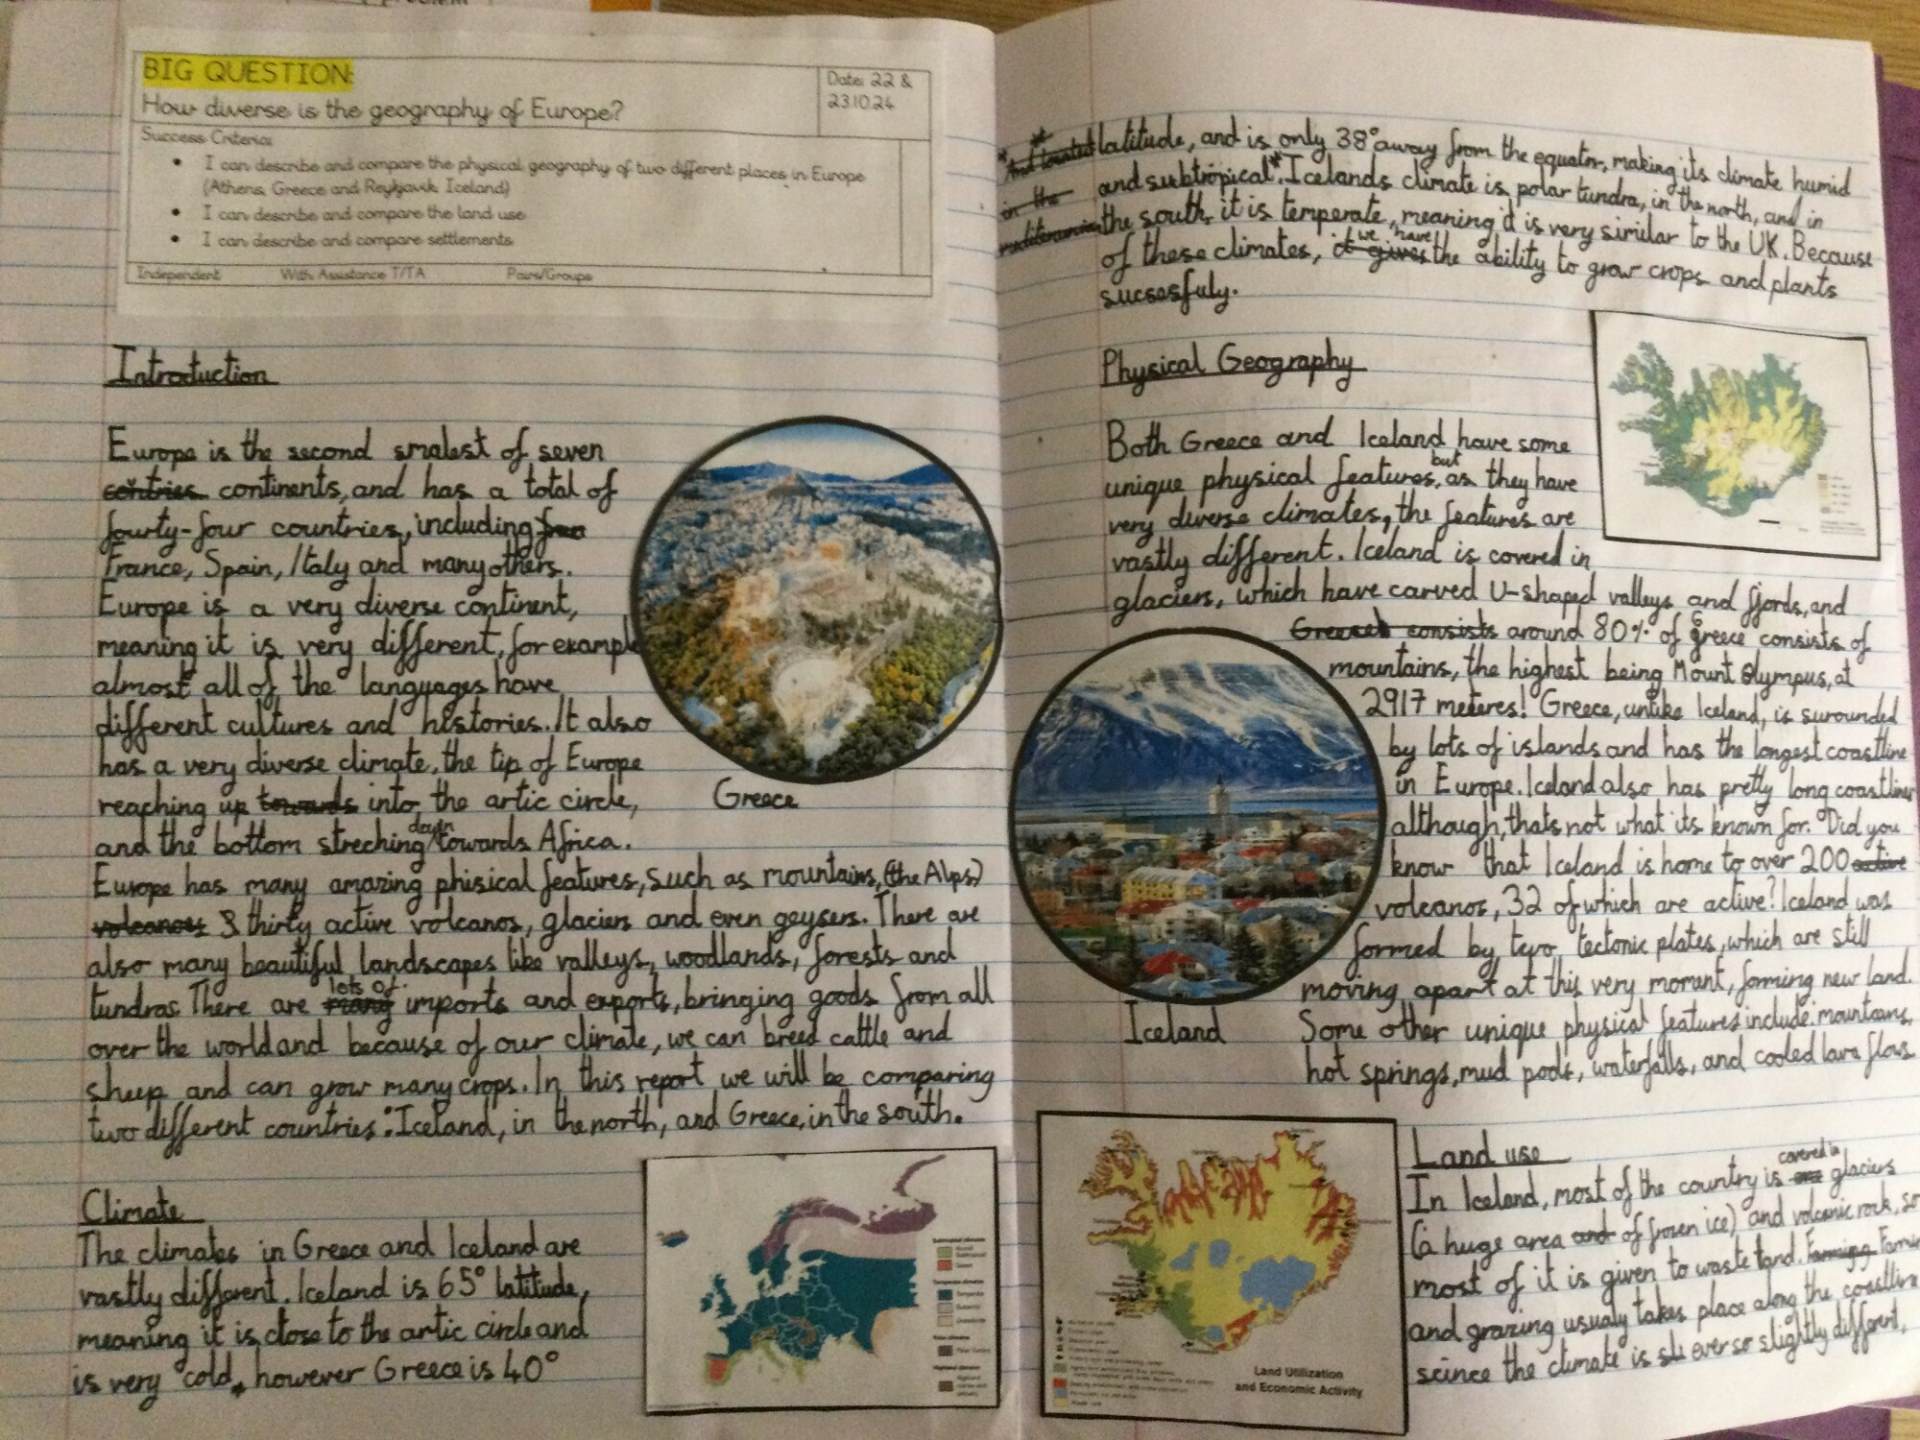 BIG QUESTION:
How diverse is the geography of Europe?
Date: 22 &
23.10.24
Success Criteria:
• I can describe and compare the physical geography of two different places in Europe
(Athens, Greece and Reykjavik, Iceland)
• I can describe and compare the land use
• I can describe and compare settlements
Independent With Assistance T/TA Pairs/Groups
Introduction
Europe is the second smalest of seven
contries continents, and has a total of
fourty-four countries, including fra
France, Spain, Italy and many others.
Europe is a very diverse continent,
meaning it is very different, for example
almost all of the languages have
different cultures and histories. It also
has a very diverse climate, the tip of Europe
reaching up towards into the artic circle,
and the bottom streching down towards Africa.
Europe has many amazing phisical features, such as mountains, (the Alps)
volcanoes 3 thirty active volcanos, glaciers and even geysers. There are
also many beautiful landscapes like valleys, woodlands, forests and
tundras. There are many lots of imports and exports, bringing goods from all
over the world and because of our climate, we can breed cattle and
sheep and can grow many crops. In this report we will be comparing
two different countries: Iceland, in the north, and Greece, in the south.
Greece
Climate
The climates in Greece and Iceland are
vastly different. Iceland is 65° latitude,
meaning it is close to the artic circle and
is very cold, however Greece is 40°
*And located
in the
latitude, and is only 38° away from the equator, making its climate humid
and subtropical*. Icelands climate is polar tundra, in the north, and in
the south, it is temperate, meaning it is very similar to the UK. Because
of these climates, it gives we have the ability to grow crops and plants
sucsesfuly.
Physical Geography
Both Greece and Iceland have some
unique physical features, but as they have
very diverse climates, the features are
vastly different. Iceland is covered in
glaciers, which have carved U-shaped valleys and fjords, and
consists around 80% of Greece consists of
mountains, the highest being Mount Olympus, at
2917 meteres! Greece, unlike Iceland, is surounded
by lots of islands and has the longest coastline
in Europe. Iceland also has pretty long coastlines
although, thats not what its known for. Did you
know that Iceland is home to over 200 active
volcanos, 32 of which are active? Iceland was
formed by two tectonic plates, which are still
moving apart at this very moment, forming new land.
Some other unique physical features include: mountains,
hot springs, mud pods, waterfalls, and cooled lava flows.
Iceland
Land use
In Iceland, most of the country is are covered in glaciers
(a huge area and of frozen ice) and volcanic rock, so
most of it is given to waste land. Farming
and grazing usualy takes place along the coastline
scince the climate is sli ever so slightly different,
Land Utilization
and Economic Activity